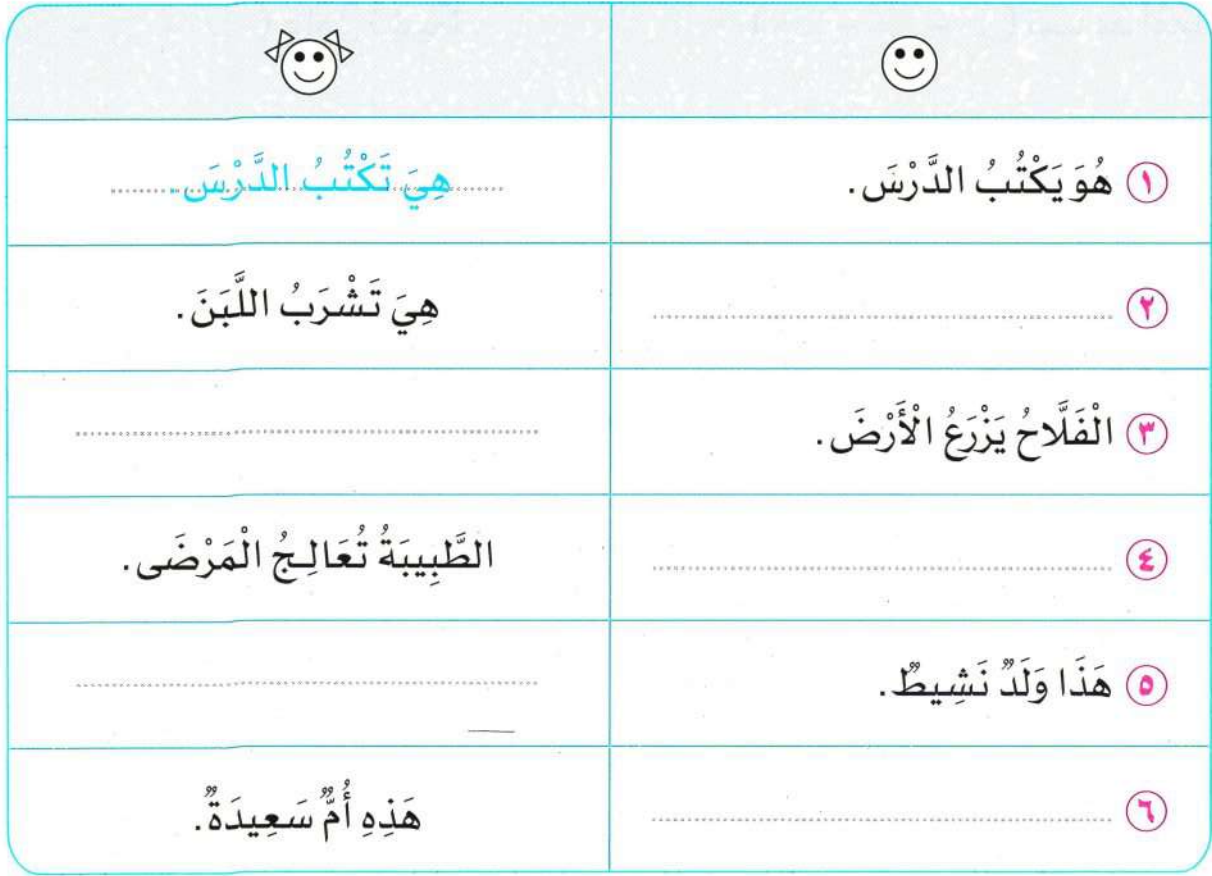 ١ هُوَ يَكْتُبُ الدَّرْسَ. هِيَ تَكْتُبُ الدَّرْسَ.
٢ هِيَ تَشْرَبُ اللَّبَنَ.
٣ الْفَلَّاحُ يَزْرَعُ الْأَرْضَ.
٤ الطَّبِيبَةُ تُعَالِجُ الْمَرْضَى.
٥ هَذَا وَلَدٌ نَشِيطٌ.
٦ هَذِهِ أُمٌّ سَعِيدَةٌ.